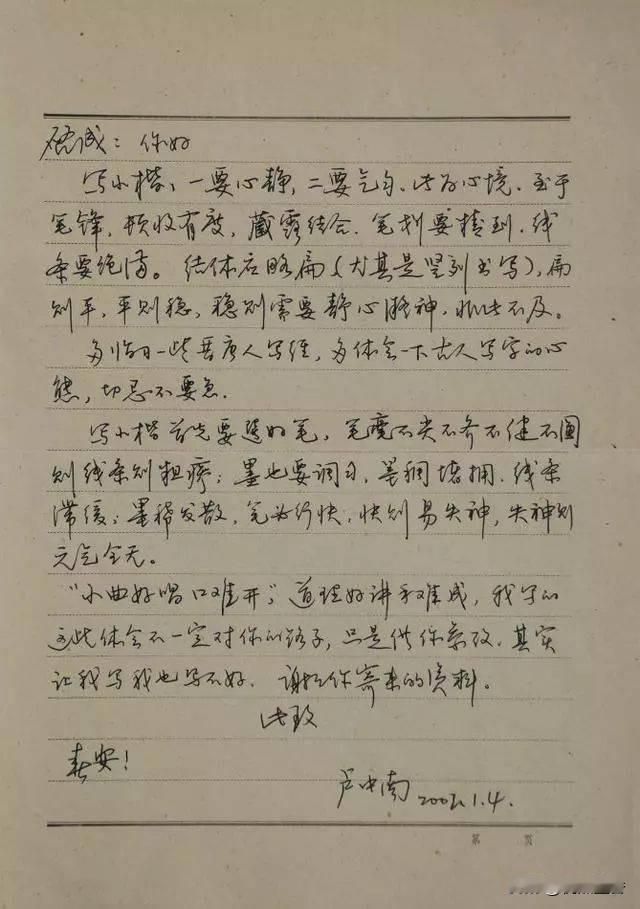 硕诚：你好
写小楷，一要心静，二要气匀，此为心境。至于
笔锋，顿收有度，藏露结合，笔划要精到，线
条要饱满。结体应略扁（尤其是竖列书写），扁
则平，平则稳，稳则需要静心凝神，非此不及。
多临习一些晋唐人写经，多体会一下古人写字的心
态，切忌不要急。
写小楷首先要选好笔，笔毫不尖不齐不健不圆
则线条则粗疏；墨也要调匀，墨稠堵拥，线条
滞缓；墨稀发散，笔必行快，快则易失神，失神则
元气全无。
“小曲好唱口难开”，道理好讲手难成，我写的
这些体会不一定对你的路子，只是供你参考，其实
让我写我也写不好。谢谢你寄来的资料。
此致
春安！
卢中南 2002.1.4.
第 页